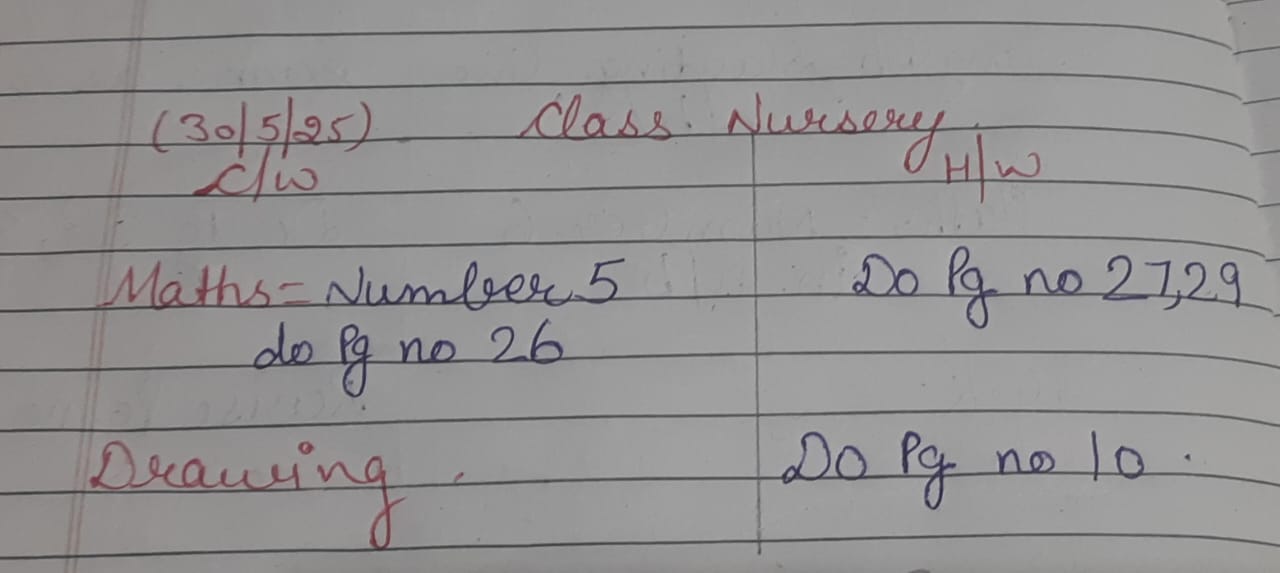 (30/5/25) Class. Nursery.
C/W H/W
Maths = Number 5 Do Pg no 27,29
do Pg no 26
Drawing. Do Pg no 10.